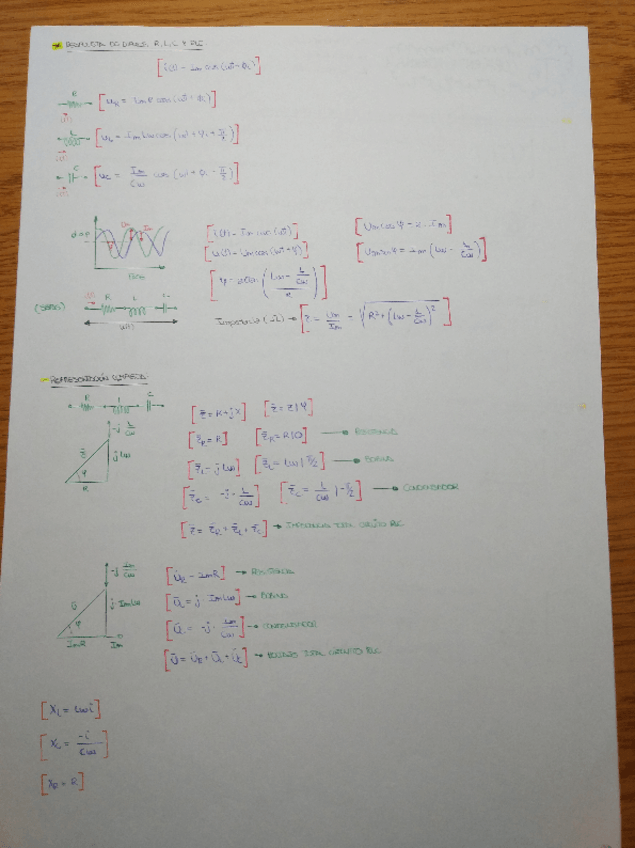 RESPUESTA DE LINEAS R, L, C Y RLC
[i(t) = Im cos(ωt + φi)]
R [uR = Im R cos(ωt + φi)]
i(t)
L [uL = Im Lω cos(ωt + φi + π/2)]
i(t)
C [uC = Im/Cω cos(ωt + φi - π/2)]
i(t)
Um Im [i(t) = Im cos(ωt)] [Um cos φ = Im R]
[u(t) = Um cos(ωt + φ)] [Um sen φ = Im (Lω - 1/Cω)]
[φ = arctan ((Lω - 1/Cω)/R)]
(SERIE) i(t) R L C
u(t) Impedancia (Ω) → [Z = Um/Im = √(R² + (Lω - 1/Cω)²)]
REPRESENTACIÓN COMPLEJA
R L C
-j 1/Cω [Z̄ = R + jX] [Z̄ = Z|φ]
Z̄ j Lω [Z̄R = R] [Z̄R = R|0] → RESISTENCIA
φ [Z̄L = j Lω] [Z̄L = Lω|π/2] → BOBINA
R [Z̄C = -j · 1/Cω] [Z̄C = 1/Cω|-π/2] → CONDENSADOR
[Z̄ = Z̄R + Z̄L + Z̄C] → IMPEDANCIA TOTAL CIRCUITO RLC
-j Im/Cω [ŪR = Im R] → RESISTENCIA
Ū j · Im Lω [ŪL = j · Im Lω] → BOBINA
φ [ŪC = -j · Im/Cω] → CONDENSADOR
Im R Im [Ū = ŪR + ŪL + ŪC] → VOLTAJE TOTAL CIRCUITO RLC
[XL = Lω i]
[XC = -i/Cω]
[XR = R]